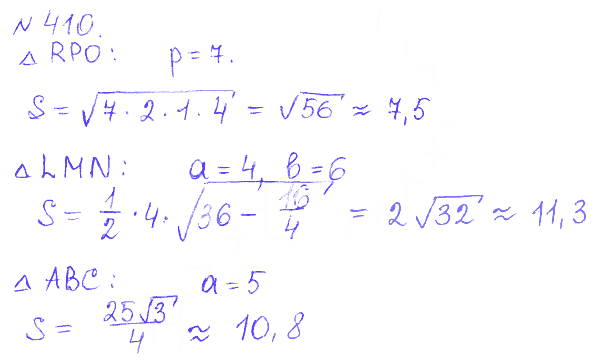 № 410.
△ RPO: p = 7.
S = √(7 · 2 · 1 · 4) = √56 ≈ 7,5
△ LMN: a = 4, b = 6
S = 1/2 · 4 · √(36 − 16/4) = 2√32 ≈ 11,3
△ ABC: a = 5
S = 25√3/4 ≈ 10,8